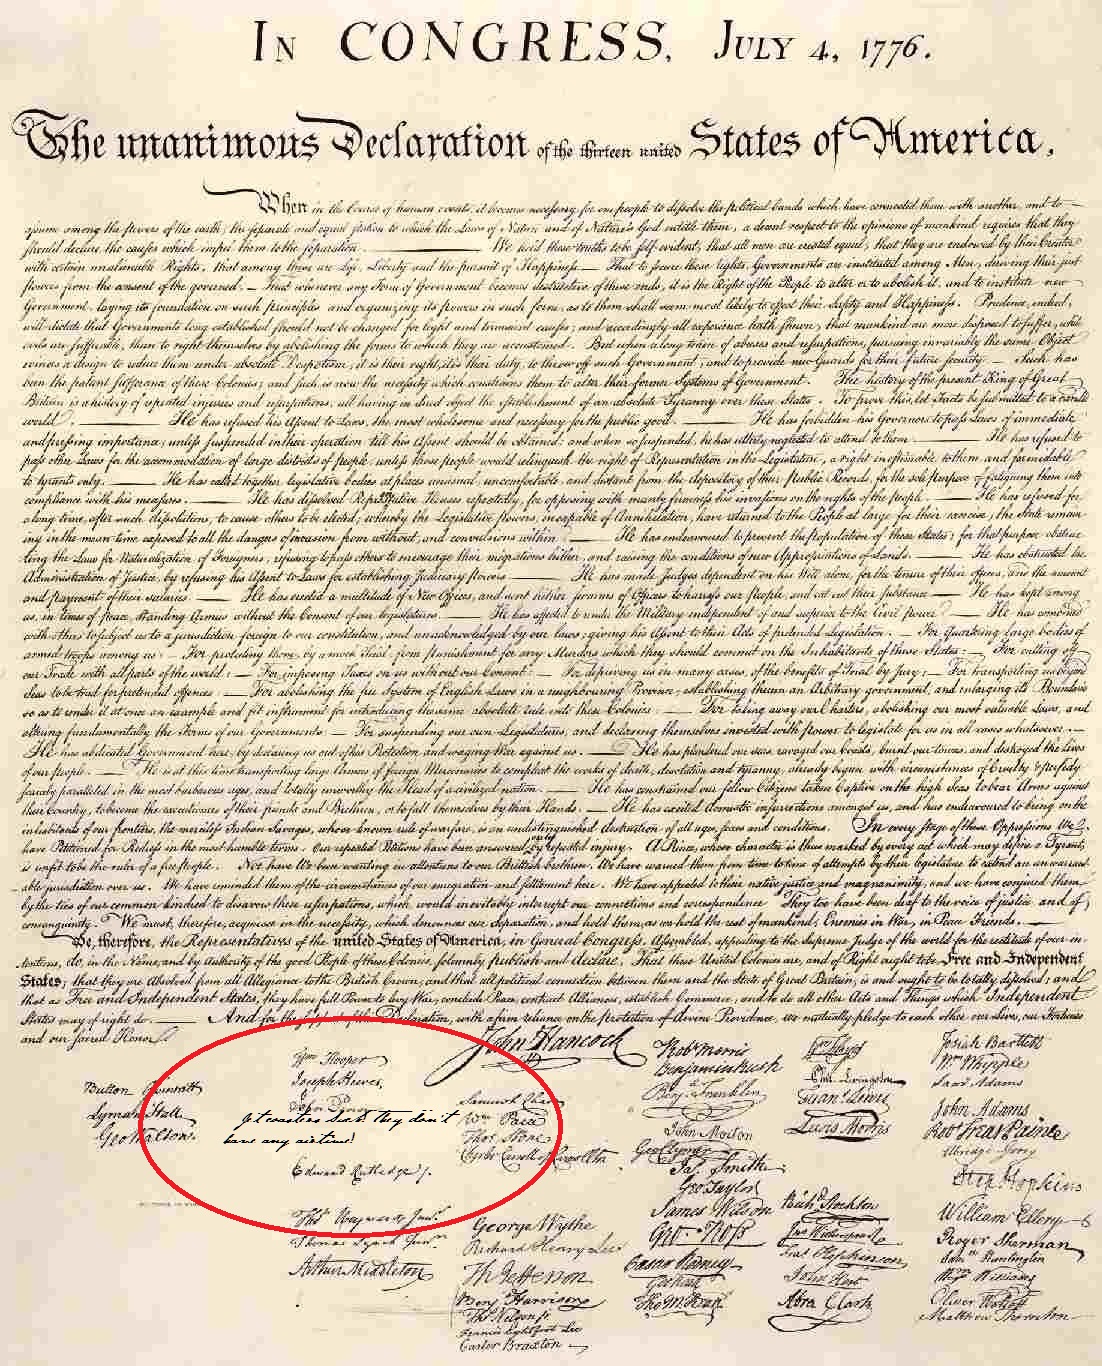 IN CONGRESS, JULY 4, 1776.
The unanimous Declaration of the thirteen united States of America,
When in the Course of human events, it becomes necessary for one people to dissolve the political bands which have connected them with another, and to
assume among the powers of the earth, the separate and equal station to which the Laws of Nature and of Nature's God entitle them, a decent respect to the opinions of mankind requires that they
should declare the causes which impel them to the separation. — We hold these truths to be self-evident, that all men are created equal, that they are endowed by their Creator
with certain unalienable Rights, that among these are Life, Liberty and the pursuit of Happiness. — That to secure these rights, Governments are instituted among Men, deriving their just
powers from the consent of the governed, — That whenever any Form of Government becomes destructive of these ends, it is the Right of the People to alter or to abolish it, and to institute new
Government, laying its foundation on such principles and organizing its powers in such form, as to them shall seem most likely to effect their Safety and Happiness. Prudence, indeed,
will dictate that Governments long established should not be changed for light and transient causes; and accordingly all experience hath shewn, that mankind are more disposed to suffer, while
evils are sufferable, than to right themselves by abolishing the forms to which they are accustomed. But when a long train of abuses and usurpations, pursuing invariably the same Object
evinces a design to reduce them under absolute Despotism, it is their right, it is their duty, to throw off such Government, and to provide new Guards for their future security. — Such has
been the patient sufferance of these Colonies; and such is now the necessity which constrains them to alter their former Systems of Government. The history of the present King of Great
Britain is a history of repeated injuries and usurpations, all having in direct object the establishment of an absolute Tyranny over these States. To prove this, let Facts be submitted to a candid
world. — He has refused his Assent to Laws, the most wholesome and necessary for the public good. — He has forbidden his Governors to pass Laws of immediate
and pressing importance, unless suspended in their operation till his Assent should be obtained; and when so suspended, he has utterly neglected to attend to them. — He has refused to
pass other Laws for the accommodation of large districts of people, unless those people would relinquish the right of Representation in the Legislature, a right inestimable to them and formidable
to tyrants only. — He has called together legislative bodies at places unusual, uncomfortable, and distant from the depository of their Public Records, for the sole purpose of fatiguing them into
compliance with his measures. — He has dissolved Representative Houses repeatedly, for opposing with manly firmness his invasions on the rights of the people. — He has refused for
a long time, after such dissolutions, to cause others to be elected; whereby the Legislative powers, incapable of Annihilation, have returned to the People at large for their exercise; the State remain-
ing in the mean time exposed to all the dangers of invasion from without, and convulsions within. — He has endeavoured to prevent the population of these States; for that purpose obstruc-
ting the Laws for Naturalization of Foreigners; refusing to pass others to encourage their migrations hither, and raising the conditions of new Appropriations of Lands. — He has obstructed the
Administration of Justice, by refusing his Assent to Laws for establishing Judiciary powers. — He has made Judges dependent on his Will alone, for the tenure of their offices, and the amount
and payment of their salaries. — He has erected a multitude of New Offices, and sent hither swarms of Officers to harrass our people, and eat out their substance. — He has kept among
us, in times of peace, Standing Armies without the Consent of our legislatures. — He has affected to render the Military independent of and superior to the Civil power. — He has combined
with others to subject us to a jurisdiction foreign to our constitution, and unacknowledged by our laws; giving his Assent to their Acts of pretended Legislation: — For Quartering large bodies of
armed troops among us: — For protecting them, by a mock Trial, from punishment for any Murders which they should commit on the Inhabitants of these States: — For cutting off
our Trade with all parts of the world: — For imposing Taxes on us without our Consent: — For depriving us in many cases, of the benefits of Trial by Jury: — For transporting us beyond
Seas to be tried for pretended offences — For abolishing the free System of English Laws in a neighbouring Province, establishing therein an Arbitrary government, and enlarging its Boundaries
so as to render it at once an example and fit instrument for introducing the same absolute rule into these Colonies: — For taking away our Charters, abolishing our most valuable Laws, and
altering fundamentally the Forms of our Governments: — For suspending our own Legislatures, and declaring themselves invested with power to legislate for us in all cases whatsoever. —
He has abdicated Government here, by declaring us out of his Protection and waging War against us. — He has plundered our seas, ravaged our Coasts, burnt our towns, and destroyed the lives
of our people. — He is at this time transporting large Armies of foreign Mercenaries to compleat the works of death, desolation and tyranny, already begun with circumstances of Cruelty & perfidy
scarcely paralleled in the most barbarous ages, and totally unworthy the Head of a civilized nation. — He has constrained our fellow Citizens taken Captive on the high Seas to bear Arms against
their Country, to become the executioners of their friends and Brethren, or to fall themselves by their Hands. — He has excited domestic insurrections amongst us, and has endeavoured to bring on the
inhabitants of our frontiers, the merciless Indian Savages, whose known rule of warfare, is an undistinguished destruction of all ages, sexes and conditions. In every stage of these Oppressions We
have Petitioned for Redress in the most humble terms: Our repeated Petitions have been answered only by repeated injury. A Prince, whose character is thus marked by every act which may define a Tyrant,
is unfit to be the ruler of a free people. Nor have We been wanting in attentions to our Brittish brethren. We have warned them from time to time of attempts by their legislature to extend an unwarrant-
able jurisdiction over us. We have reminded them of the circumstances of our emigration and settlement here. We have appealed to their native justice and magnanimity, and we have conjured them
by the ties of our common kindred to disavow these usurpations, which would inevitably interrupt our connections and correspondence. They too have been deaf to the voice of justice and of
consanguinity. We must, therefore, acquiesce in the necessity, which denounces our Separation, and hold them, as we hold the rest of mankind, Enemies in War, in Peace Friends. —
We, therefore, the Representatives of the united States of America, in General Congress, Assembled, appealing to the Supreme Judge of the world for the rectitude of our in-
tentions, do, in the Name, and by Authority of the good People of these Colonies, solemnly publish and declare, That these United Colonies are, and of Right ought to be Free and Independent
States; that they are Absolved from all Allegiance to the British Crown, and that all political connection between them and the State of Great Britain, is and ought to be totally dissolved; and
that as Free and Independent States, they have full Power to levy War, conclude Peace, contract Alliances, establish Commerce, and to do all other Acts and Things which Independent
States may of right do. — And for the support of this Declaration, with a firm reliance on the protection of divine Providence, we mutually pledge to each other our Lives, our Fortunes
and our sacred Honor.
Button Gwinnett
Lyman Hall
Geo Walton.
Wm Hooper
Joseph Hewes,
John Penn
gt coasters suck they don't
have any airtime!
Edward Rutledge /.
Thos Heyward Junr.
Thomas Lynch Junr.
Arthur Middleton
John Hancock
Samuel Chase
Wm Paca
Thos Stone
Charles Carroll of Carrollton
George Wythe
Richard Henry Lee
Th Jefferson
Benj Harrison
Thos Nelson jr.
Francis Lightfoot Lee
Carter Braxton
Robt Morris
Benjamin Rush
Benj. Franklin
John Morton
Geo Clymer
Jas. Smith
Geo. Taylor
James Wilson
Geo. Ross
Caesar Rodney
Geo Read
Tho M:Kean
Wm Floyd
Phil. Livingston
Frans. Lewis
Lewis Morris
Richd. Stockton
Jno Witherspoon
Fras. Hopkinson
John Hart
Abra Clark
Josiah Bartlett
Wm. Whipple
Saml Adams
John Adams
Robt Treat Paine
Elbridge Gerry
Step. Hopkins
William Ellery
Roger Sherman
Saml Huntington
Wm. Williams
Oliver Wolcott
Matthew Thornton